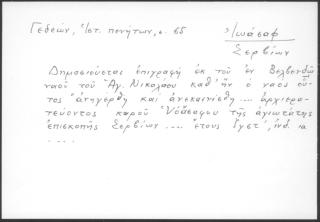 Γεδεών, Πατ. πινάκων, σ. 65
Ἰωάσαφ
Σερβίων
Δημοσιεύεται ἐπιγραφὴ ἐκ τοῦ ἐν Βελβενδῷ
ναοῦ τοῦ Ἁγ. Νικολάου καθ' ἣν ὁ ναὸς οὗ-
τος ἀνηγέρθη καὶ ἀνεκαινίσθη .... ἀρχιερα-
τεύοντος κυροῦ Ἰωάσαφου τῆς ἁγιωτάτης
ἐπισκοπῆς Σερβίων .... ἔτους ἰνδ. ια
....